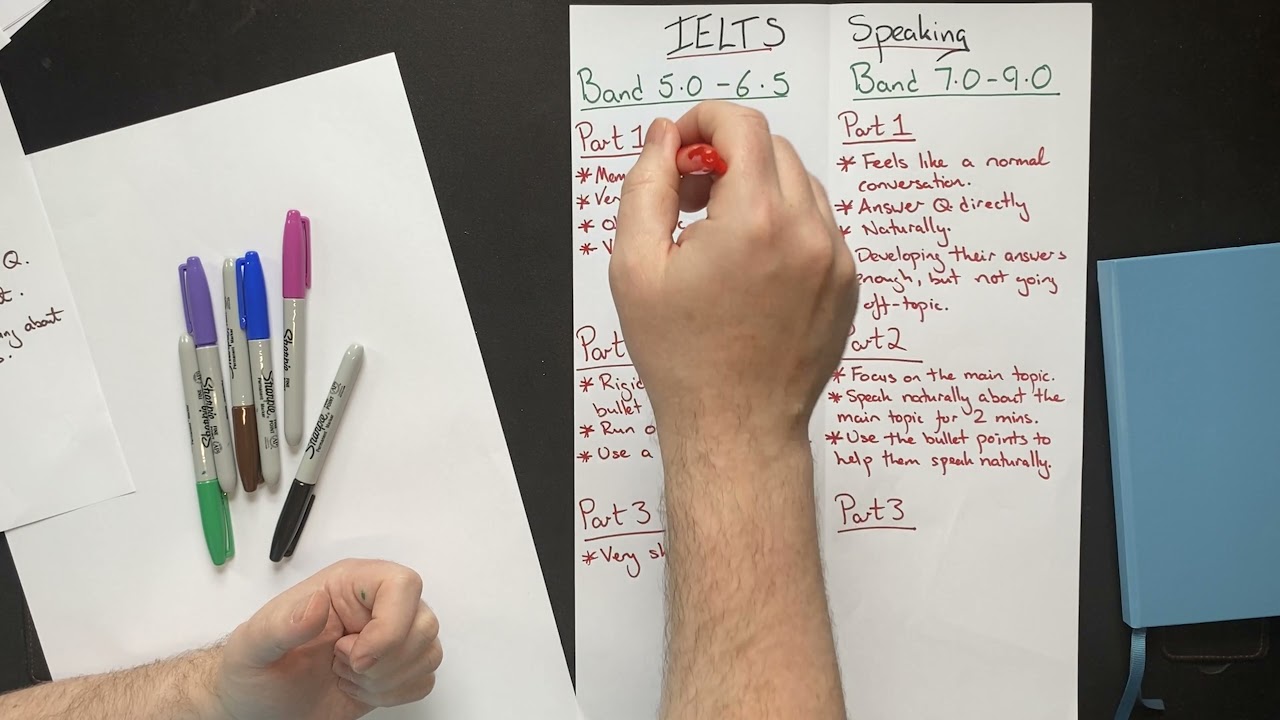 IELTS Speaking
Band 5.0 - 6.5
Part 1
* Mem
* Ver
*
* V
Part
* Rigid
bullet
* Run o
* Use a
Part 3
* Very sh
Band 7.0 - 9.0
Part 1
* Feels like a normal
conversation.
* Answer Q. directly
* Naturally.
Developing their answers
enough, but not going
off-topic.
Part 2
* Focus on the main topic.
* Speak naturally about the
main topic for 2 mins.
* Use the bullet points to
help them speak naturally.
Part 3
Q.
t.
about
Sharpie
Sharpie
Sharpie
Sharpie